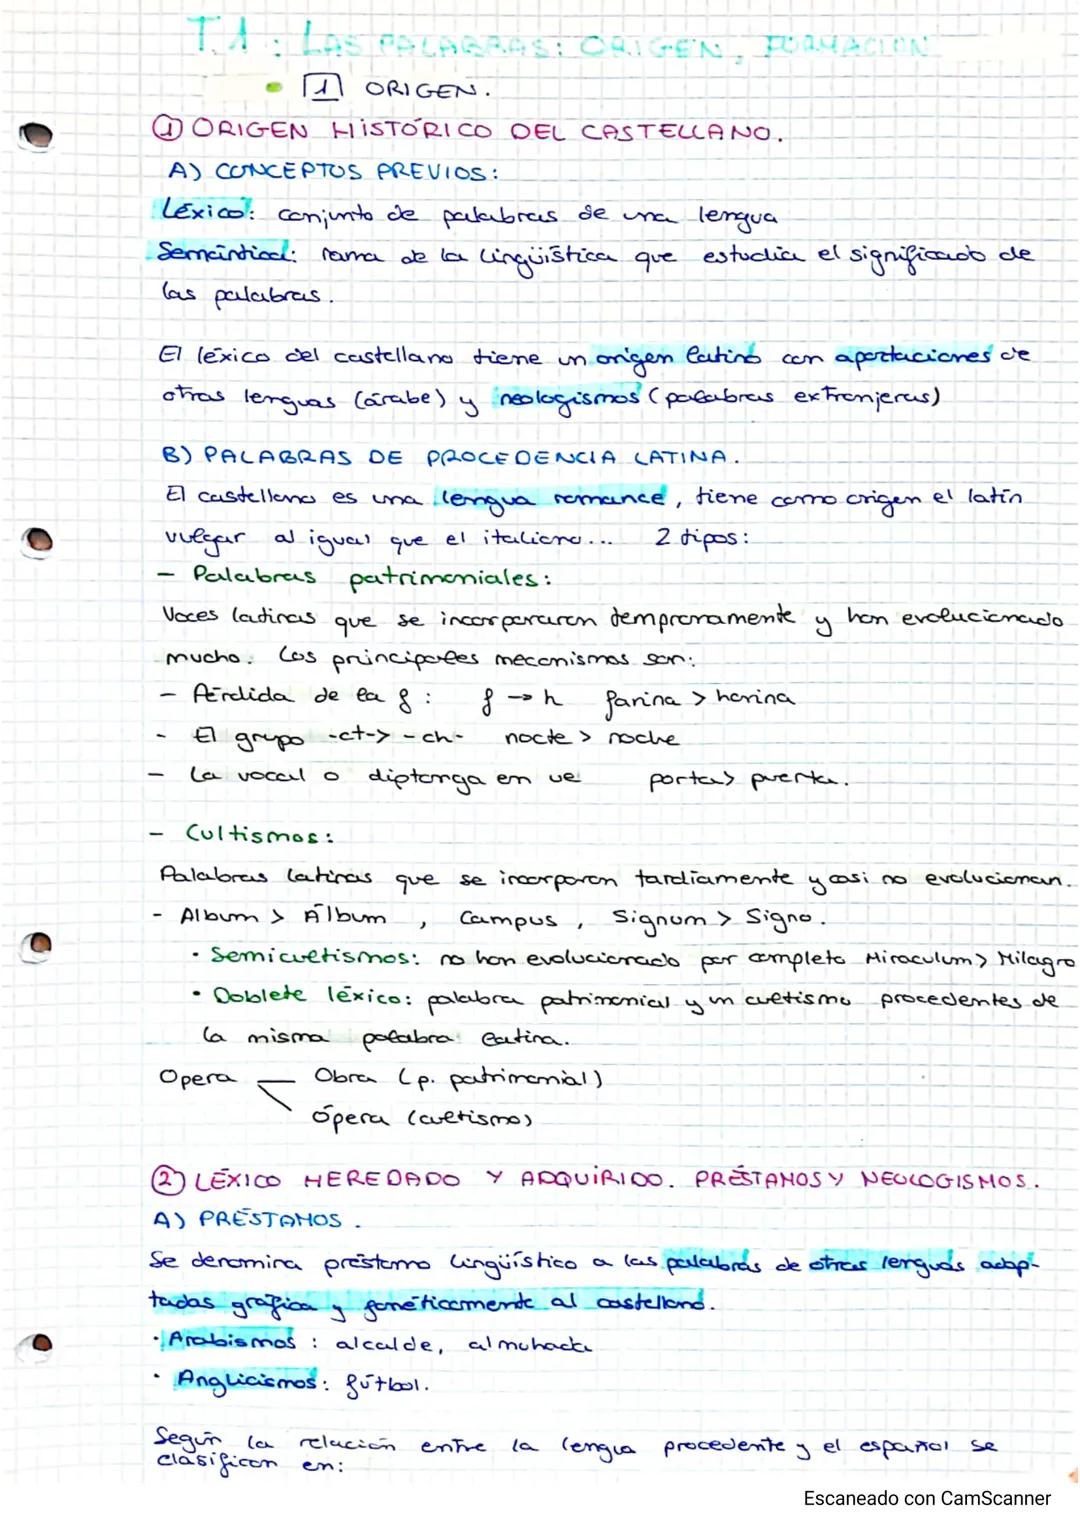 T.1: LAS PALABRAS: ORIGEN, FORMACIÓN
• 1 ORIGEN.
① ORIGEN HISTÓRICO DEL CASTELLANO.
A) CONCEPTOS PREVIOS:
Léxico: conjunto de palabras de una lengua
Semántica: rama de la lingüística que estudia el significado de
las palabras.
El léxico del castellano tiene un origen latino con aportaciones de
otras lenguas (árabe) y neologismos (palabras extranjeras)
B) PALABRAS DE PROCEDENCIA LATINA.
El castellano es una lengua romance, tiene como origen el latín
vulgar al igual que el italiano... 2 tipos:
- Palabras patrimoniales:
Voces latinas que se incorporaron tempranamente y han evolucionado
mucho. Los principales mecanismos son:
- Pérdida de la f: f → h farina > harina
- El grupo -ct-> -ch- nocte > noche
- La vocal o diptonga en ue porta> puerta.
- Cultismos:
Palabras latinas que se incorporan tardiamente y casi no evolucionan.
- Album > Álbum, Campus, Signum > Signo.
• Semicultismos: no han evolucionado por completo Miraculum> Milagro
• Doblete léxico: palabra patrimonial y un cultismo procedentes de
la misma palabra latina.
Opera — Obra (p. patrimonial)
ópera (cultismo)
② LÉXICO HEREDADO Y ADQUIRIDO. PRÉSTAMOS Y NEOLOGISMOS.
A) PRÉSTAMOS.
Se denomina préstamo lingüístico a las palabras de otras lenguas adap-
tadas gráfica y fonéticamente al castellano.
· Arabismos: alcalde, almohada
· Anglicismos: fútbol.
Según la relación entre la lengua procedente y el español se
clasifican en:
Escaneado con CamScanner